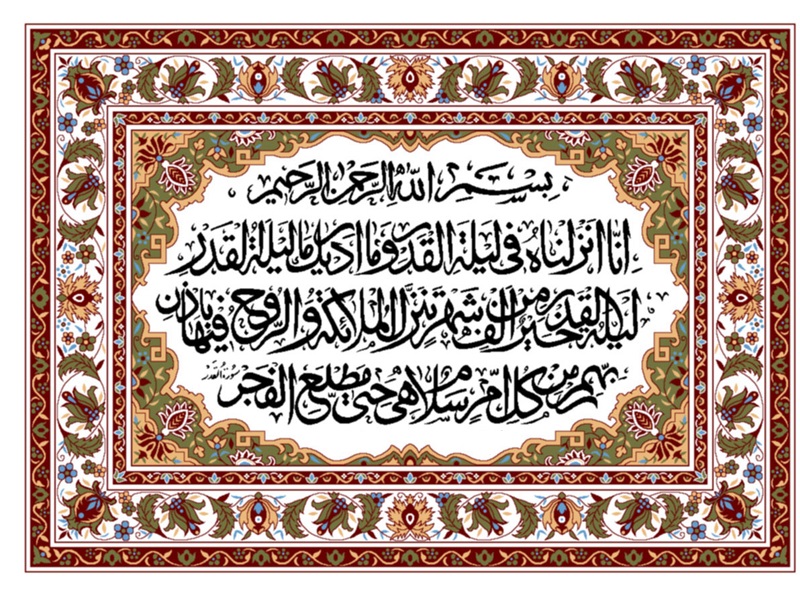 بسم الله الرحمن الرحيم
انا انزلناه فی لیلة القدر وما ادریك ما لیلة القدر
لیلة القدر خیر من الف شهر تنزل الملائكة والروح فیها باذن
ربهم من كل امر سلام هی حتی مطلع الفجر
سورة القدر